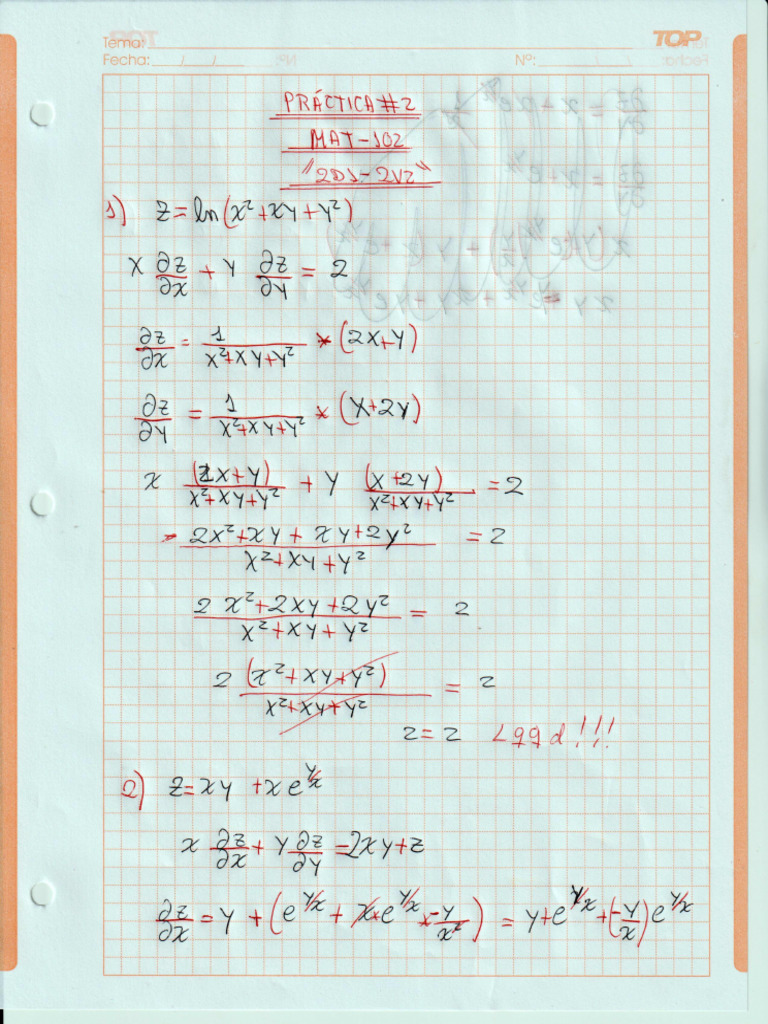 Tema:
TOP
Fecha: / /
Nº: / /
PRÁCTICA #2
MAT-102
"2D1-2V2"
1) z = ln(x²+xy+y²)
x ∂z/∂x + y ∂z/∂y = 2
∂z/∂x = 1/(x²+xy+y²) * (2x+y)
∂z/∂y = 1/(x²+xy+y²) * (x+2y)
x (2x+y)/(x²+xy+y²) + y (x+2y)/(x²+xy+y²) = 2
(2x²+xy+xy+2y²)/(x²+xy+y²) = 2
(2x²+2xy+2y²)/(x²+xy+y²) = 2
2 (x²+xy+y²)/(x²+xy+y²) = 2
2=2 Lqqd!!!
2) z = xy + x e^(y/x)
x ∂z/∂x + y ∂z/∂y = 2xy+z
∂z/∂x = y + (e^(y/x) + x * e^(y/x) * -y/x²) = y + e^(y/x) + (-y/x) e^(y/x)